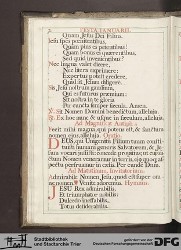 2 FESTA JANUARII.
Quam Jesus Dei Filius.
Jesu spes pœnitentibus,
Quam pius es petentibus!
Quam bonus te quærentibus,
Sed quid invenientibus?
Nec lingua valet dicere,
Nec littera exprimere:
Expertus potest credere,
Quid sit Jesum diligere.
Sis Jesu nostrum gaudium,
Qui es futurus præmium:
Sit nostra in te gloria
Per cuncta semper sæcula. Amen.
℣. Sit Nomen Domini benedictum, alleluia.
℟. Ex hoc nunc & usque in sæculum, alleluia.
Ad Magnificat Antiph.
Fecit mihi magna, qui potens est, & sanctum
nomen ejus, alleluia. Oratio.
DEUS, qui Unigenitum Filium tuum constituisti
humani generis Salvatorem, &
Jesum vocari jussisti: concede propitius; ut cujus
sanctum Nomen veneramur in terris, ejus quoque
aspectu perfruamur in cœlis. Per eundem Dnm.
Ad Matutinum, Invitatorium.
Admirabile Nomen Jesu, quod est super omne
nomen, * Venite adoremus. Hymnus.
JESU Rex admirabilis,
Et triumphator nobilis,
Dulcedo ineffabilis,
Totus desiderabilis.
Stadtbibliothek
und Stadtarchiv Trier
gefördert von der
Deutschen Forschungsgemeinschaft
DFG